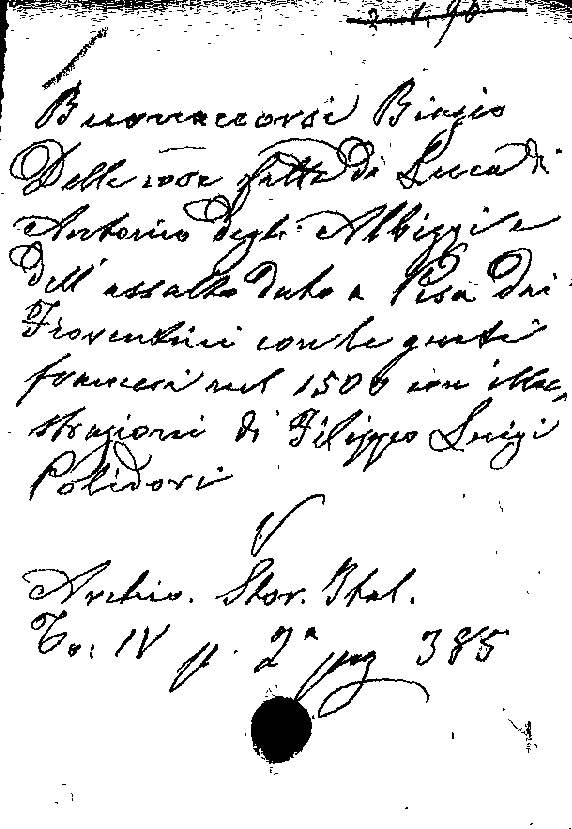 Buonaccorsi Biagio
Delle cose fatte da Luca di
Antonio degli Albizzi e
dell' assalto dato a Pisa dai
Fiorentini con le genti
francesi nel 1500 con illu-
strazioni di Filippo Luigi
Polidori
V
Archiv. Stor. Ital.
To. IV p. 2ª pag 385